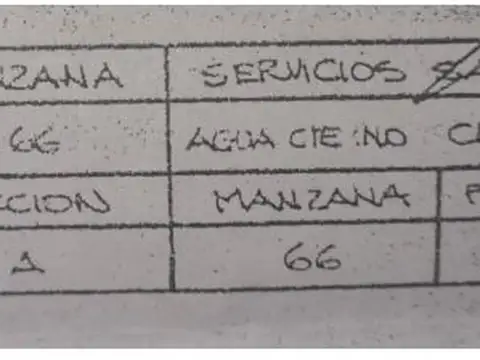 ZANA SERVICIOS
66 AGUA CTE:NO
CCION MANZANA
1 66